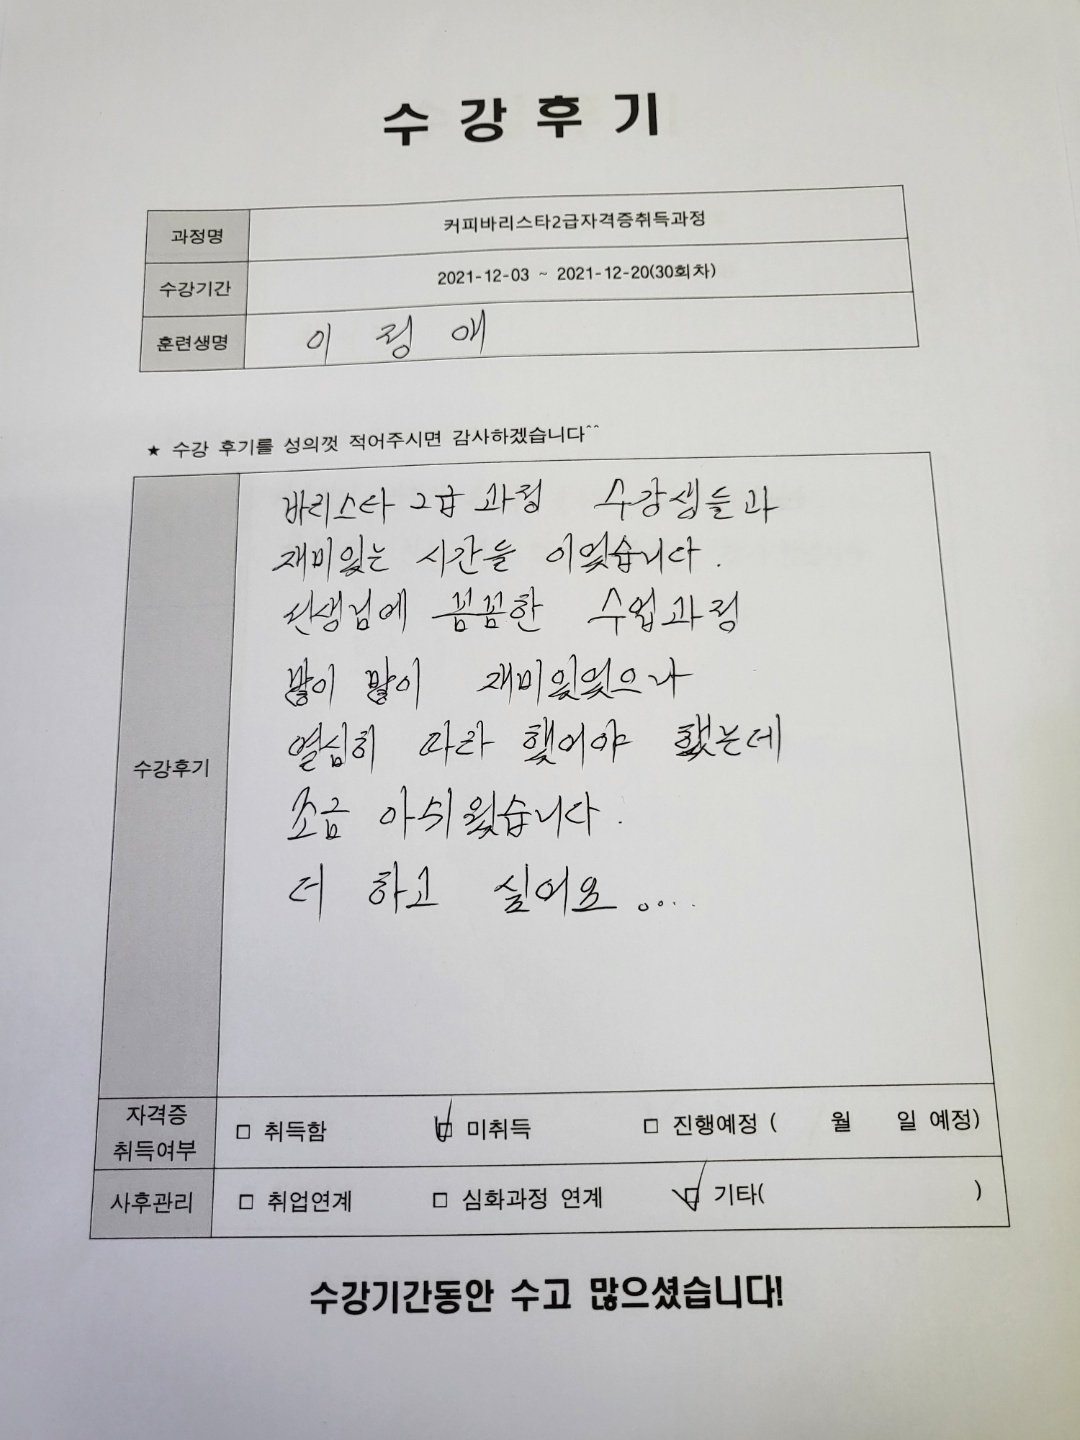 수 강 후 기
과정명 커피바리스타2급자격증취득과정
수강기간 2021-12-03 ~ 2021-12-20(30회차)
훈련생명 이 정 애
★ 수강 후기를 성의껏 적어주시면 감사하겠습니다^^
수강후기
바리스타 2급 과정 수강생들과
재미있는 시간들 이었습니다.
선생님에 꼼꼼한 수업과정
많이 많이 재미있었으나
열심히 따라 했어야 했는데
조금 아쉬웠습니다.
더 하고 싶어요 ....
자격증 취득여부 □ 취득함 □ 미취득 □ 진행예정 ( 월 일 예정)
사후관리 □ 취업연계 □ 심화과정 연계 □ 기타( )
수강기간동안 수고 많으셨습니다!